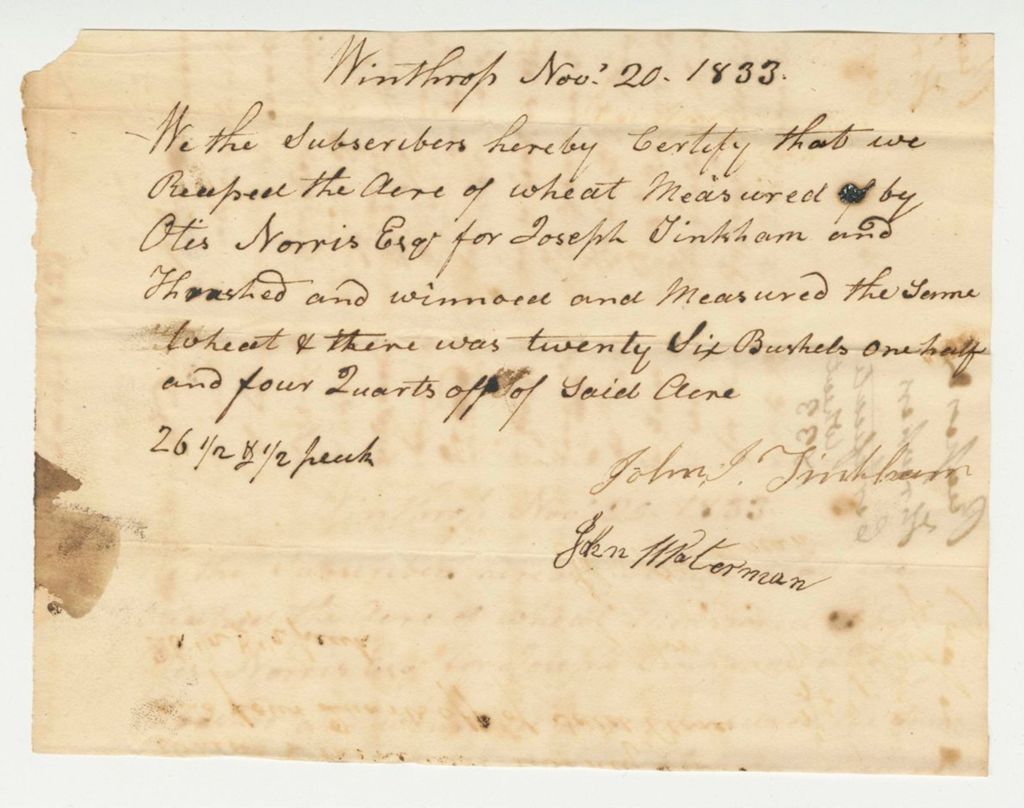 Winthrop Nov. 20. 1833.
We the Subscribers hereby Certify that we
Reaped the Acre of wheat Measured by
Otis Norris Esqr for Joseph Tinkham and
Thrashed and winnoed and Measured the Same
Wheat & there was twenty Six Bushels one half
and four Quarts off of Said Acre
26 1/2 & 1/2 peck
John J. Tinkham
John Waterman